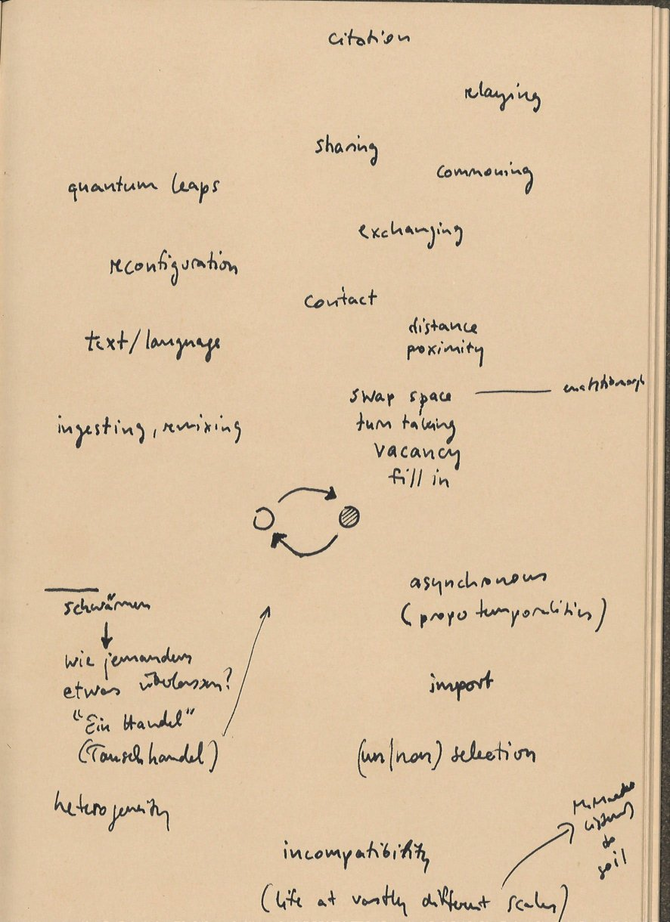 citation
relaying
sharing
commoning
quantum leaps
exchanging
reconfiguration
contact
distance
poximity
text/language
swap space
turn taking
ingesting, remixing
vacancy
fill in
asynchronous
(propo temporalities)
schwärmen
wie jemandem
etwas überlassen?
import
"Ein Handel"
(Tauschhandel)
(un/non) selection
heterogeneity
listens
to
soil
incompatibility
(life at vastly different scales)